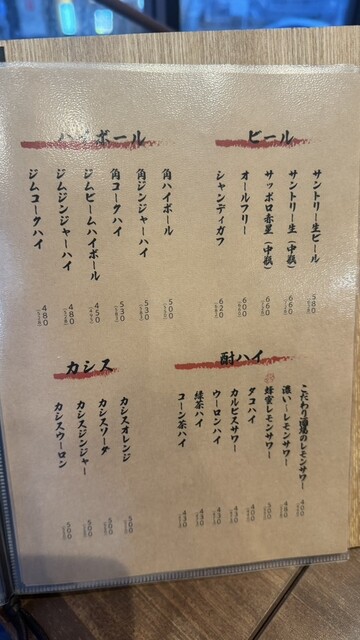 ビール
サントリー生ビール 580
サントリー生(中瓶) 660
サッポロ赤星(中瓶) 660
オールフリー 600
シャンディガフ 620
ハイボール
角ハイボール 500
角ジンジャーハイ 530
角コークハイ 530
ジムビームハイボール 450
ジムジンジャーハイ 480
ジムコークハイ 480
酎ハイ
こだわり酒場のレモンサワー 400
濃い〜レモンサワー 480
蜂蜜レモンサワー 500
タコハイ 400
カルピスサワー 430
ウーロンハイ 430
緑茶ハイ 430
コーン茶ハイ 430
カシス
カシスオレンジ 500
カシスソーダ 500
カシスジンジャー 500
カシスウーロン 500